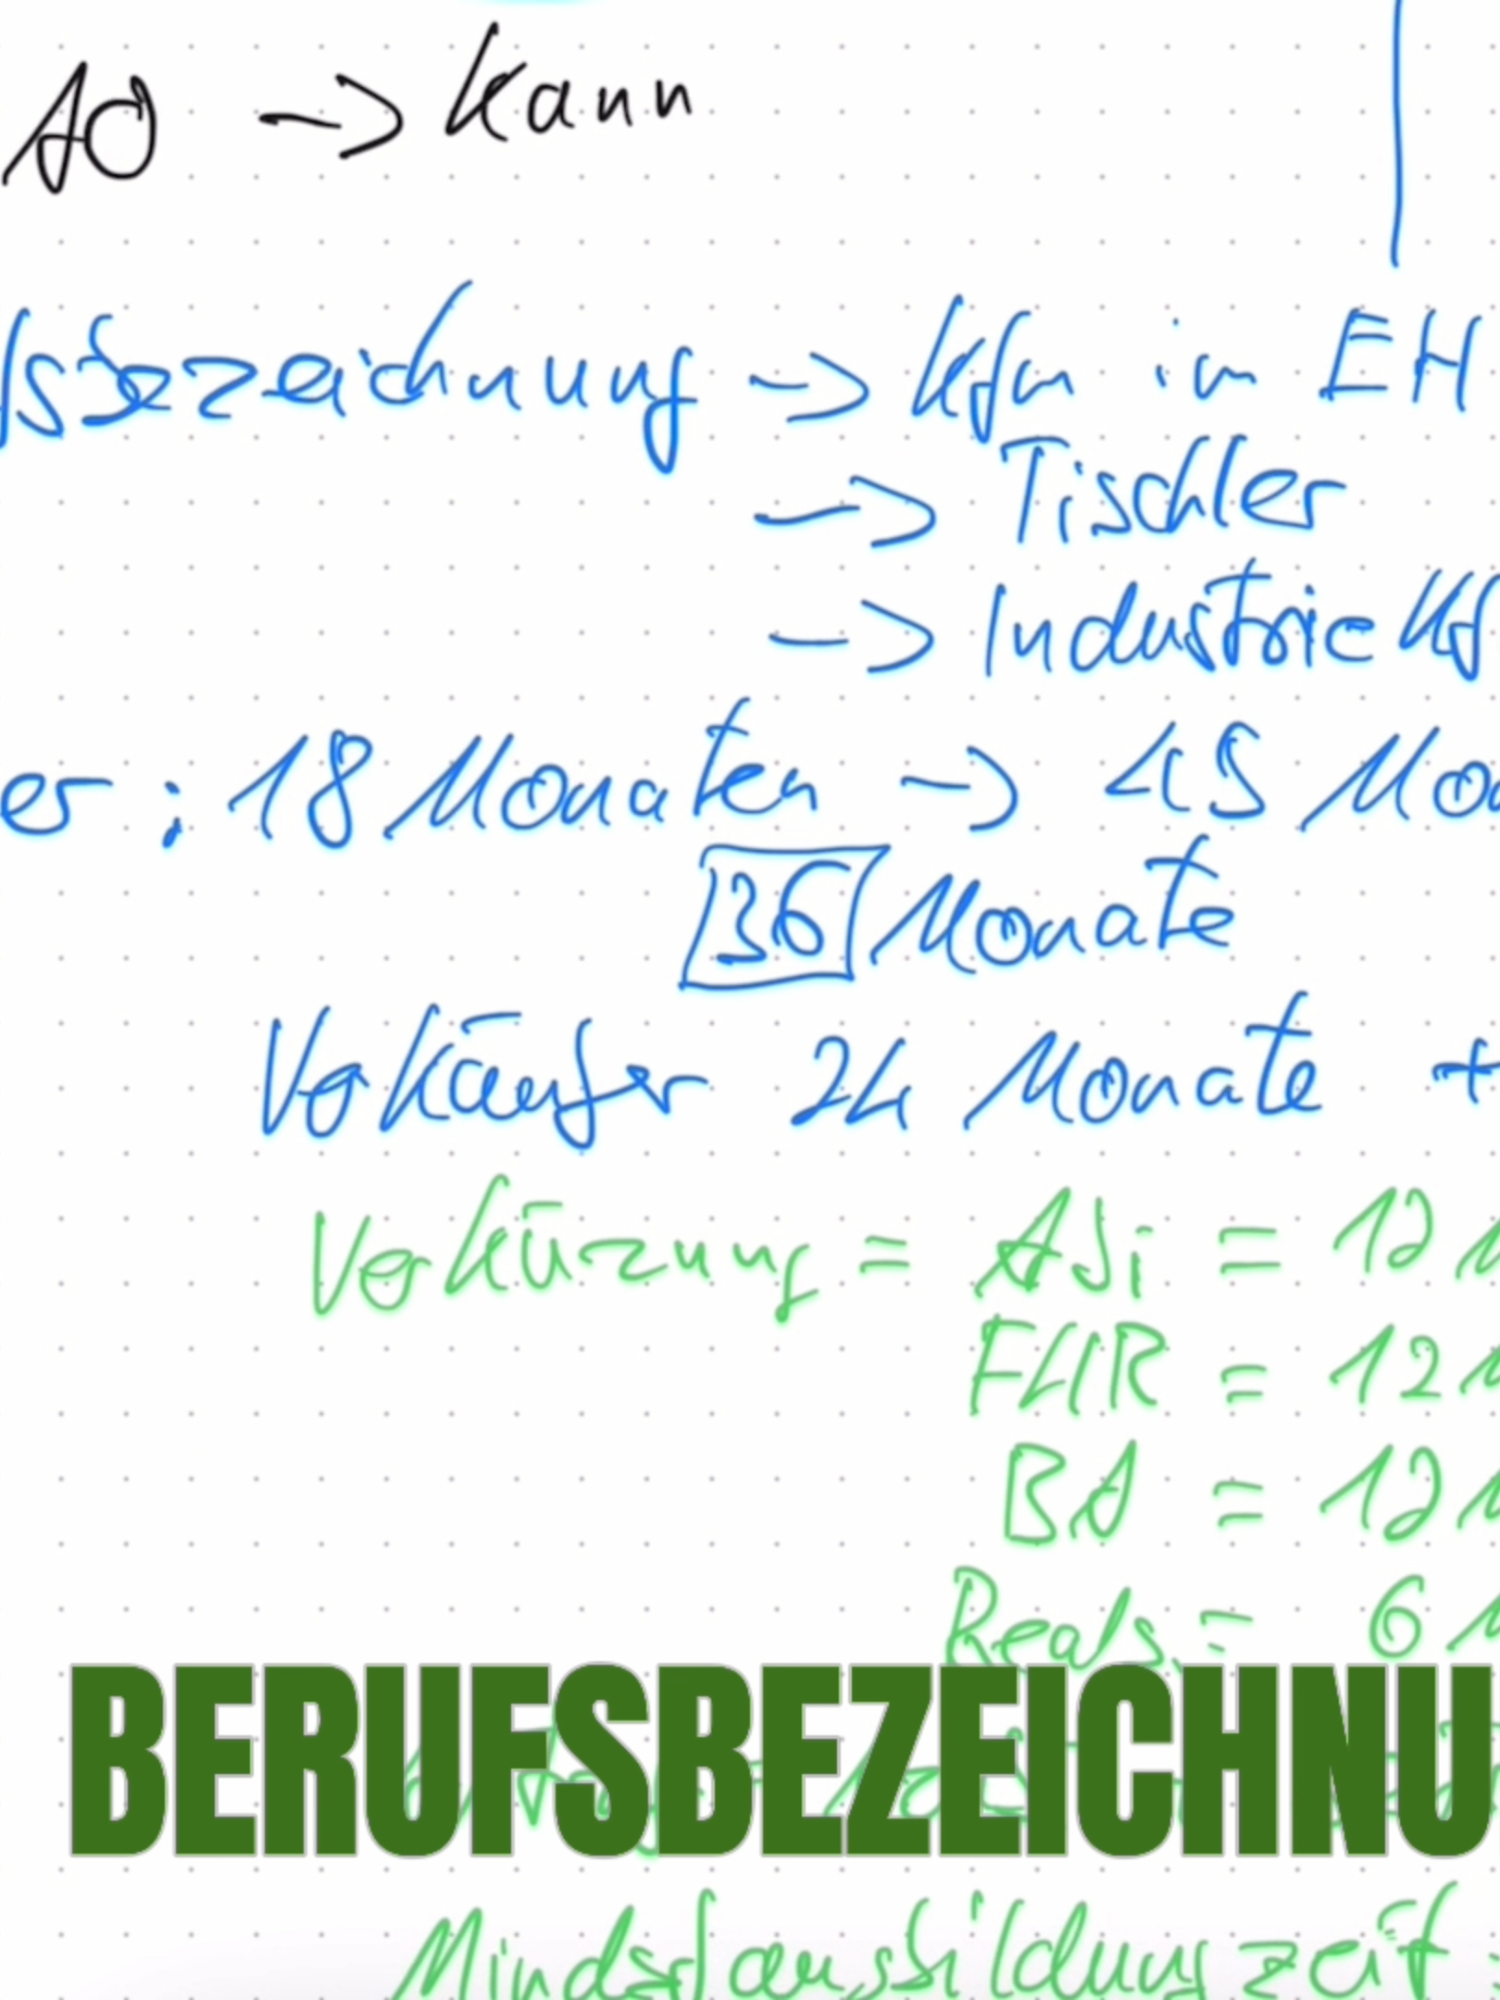 AO -> Kann
sbezeichnung -> Kfm in EH
-> Tischler
-> Industriekf
er: 18 Monaten -> <45 Mon
36 Monate
Verkäufer 24 Monate +
Verkürzung = Abi = 12 M
FHR = 12 M
BA = 12 M
Reals. = 6 M
BERUFSBEZEICHNU
Mindestausbildungszeit: